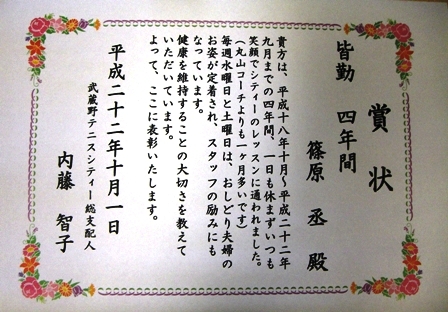 賞状
皆勤 四年間
篠原 丞 殿
貴方は、平成十八年十月～平成二十二年
九月までの四年間、一日も休まずいつも
笑顔でシティーのレッスンに通われました。
(丸山コーチよりも一ヶ月多いです)
毎週水曜日と土曜日は、おしどり夫婦の
お姿が定着され、スタッフの励みにも
なっています。
健康を維持することの大切さを教えて
いただいています。
よって、ここに表彰いたします。
平成二十二年十月一日
武蔵野テニスシティー総支配人
内藤 智子